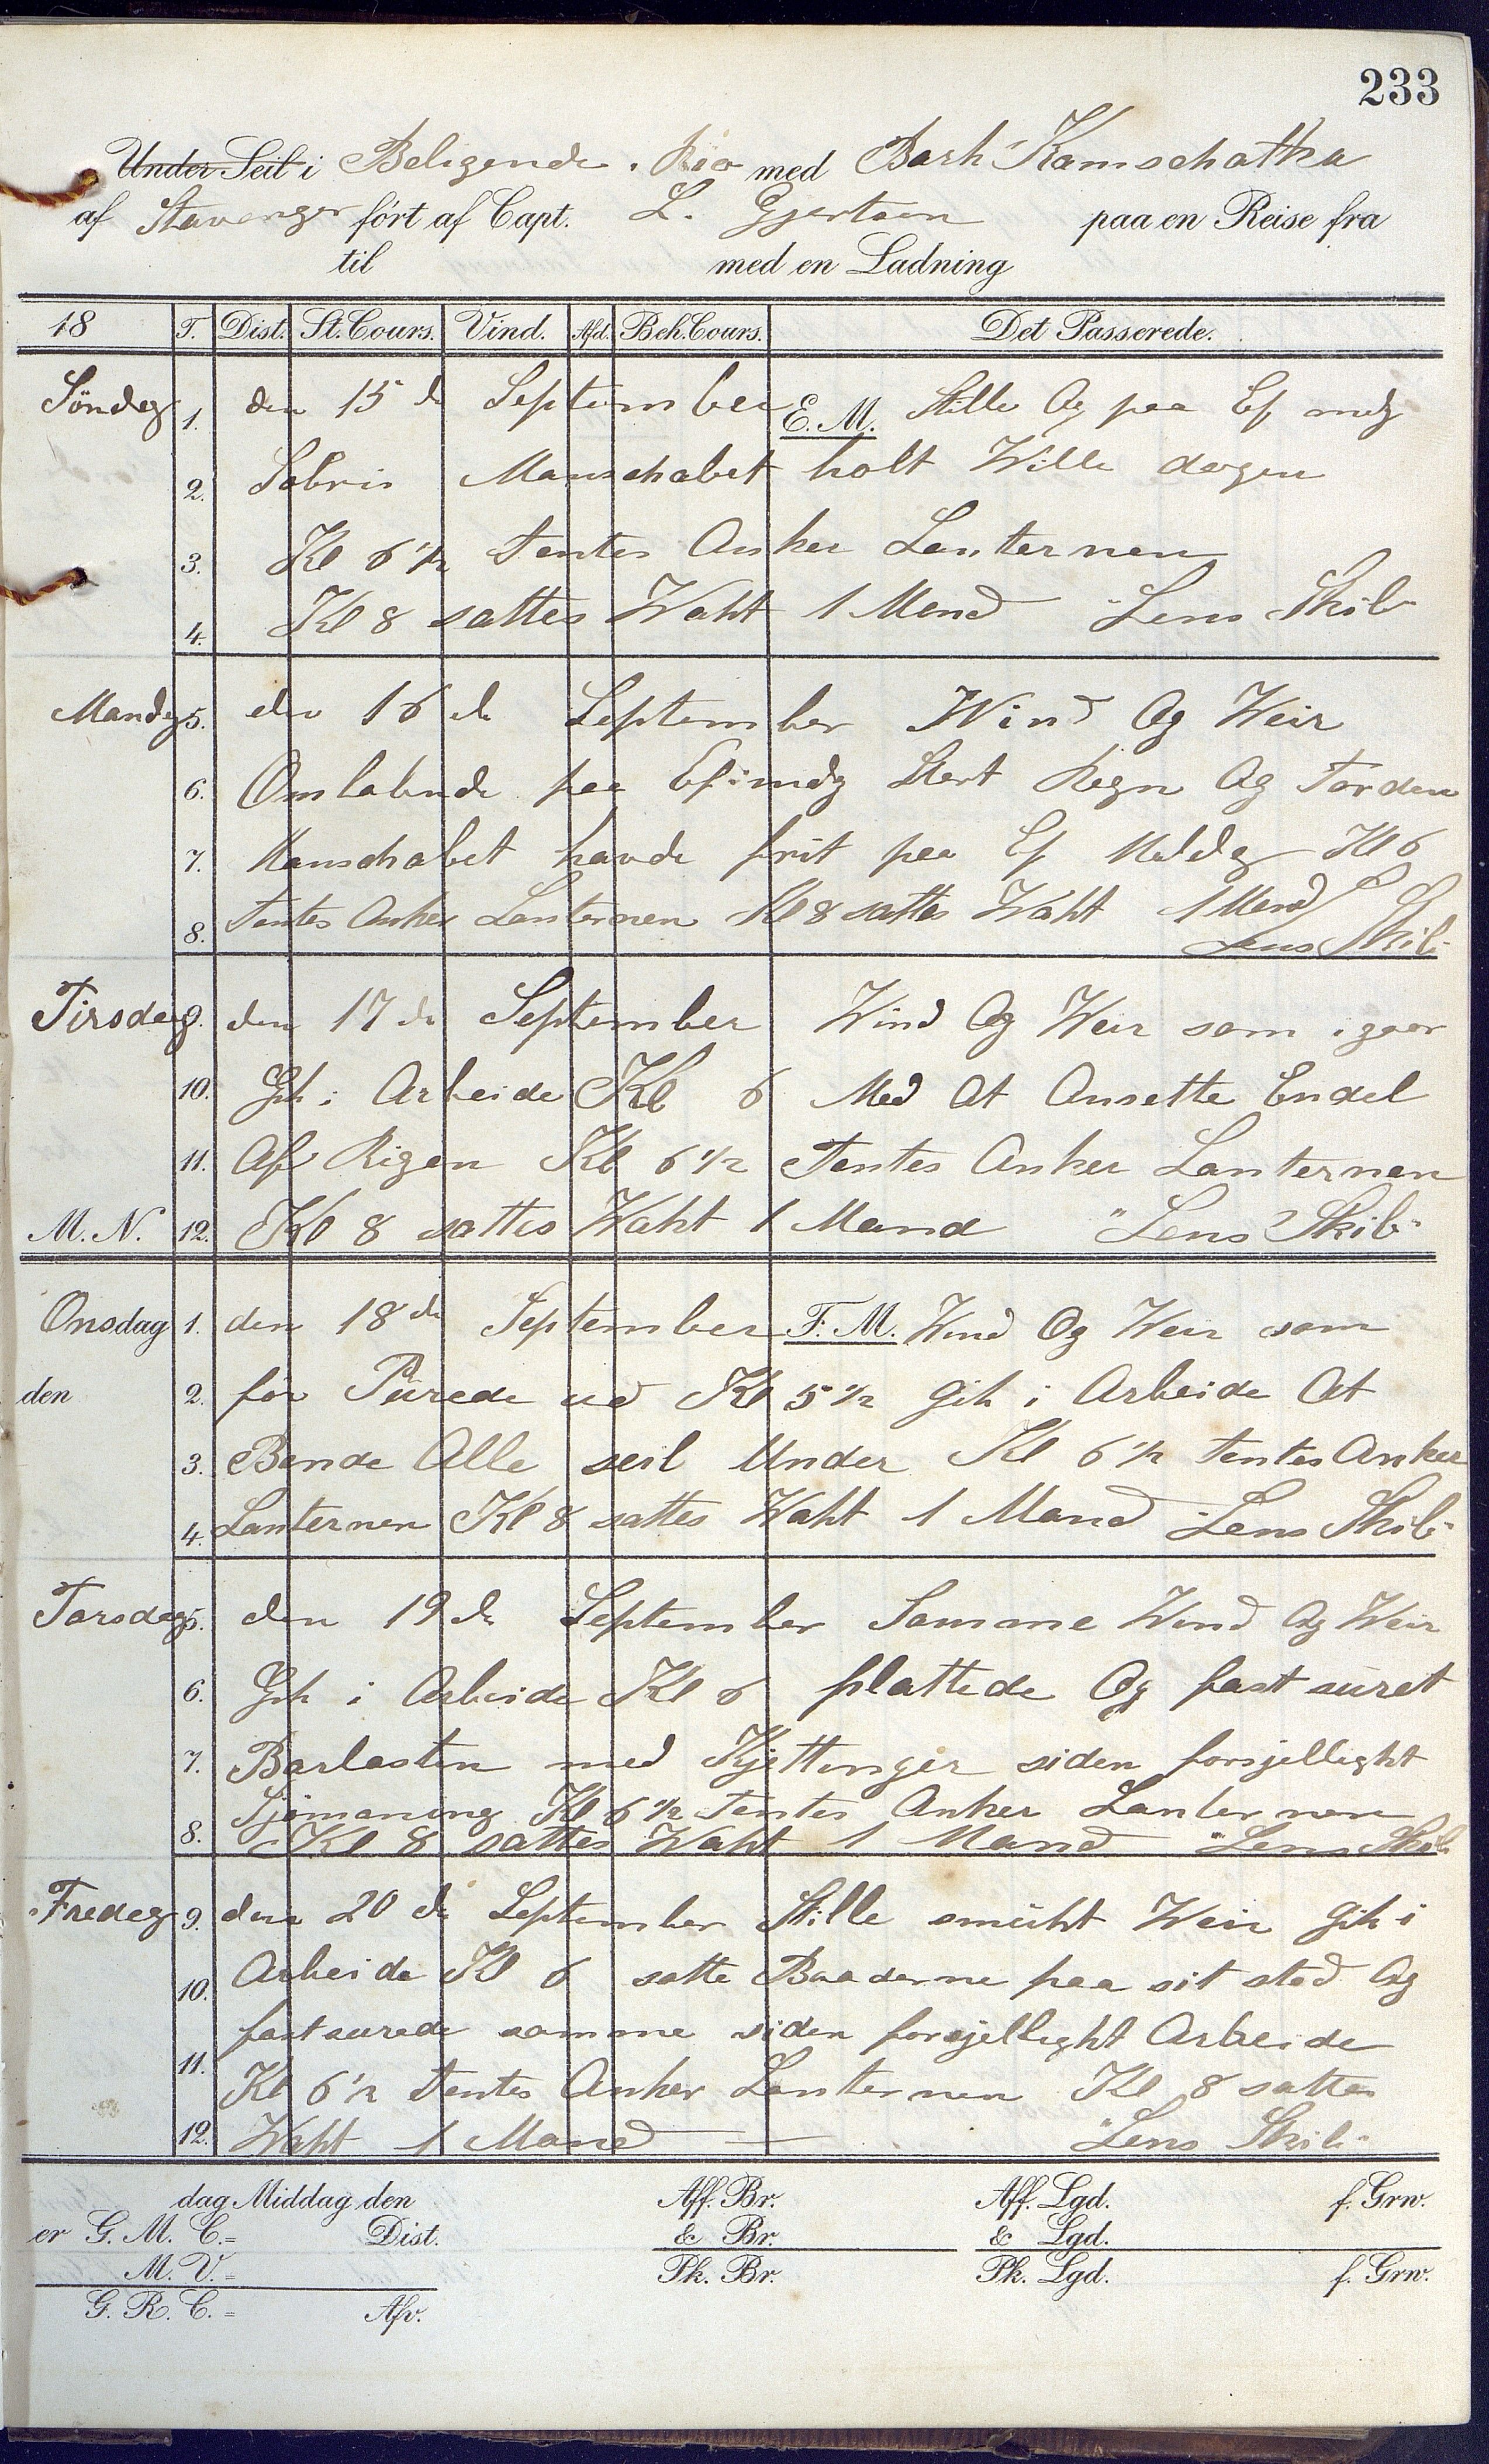 233
Under Seil i Beligende i Rio med Bark Kamschatka
af Stavanger ført af Capt. L. Gjertsen paa en Reise fra
til med en Ladning
18 T. Dist. St. Cours. Vind. Afd. Beh. Cours. Det Passerede.
Söndag 1. den 15 de September E. M. Stille Og paa Ef mdg
2. Sobris Manschabet holt Wille dagen
3. Kl 6 1/2 tentes Anker Lanternen
4. Kl 8 sattes Waht 1 Mand "Lens Skib"
Mandg 5. den 16 de September Wind Og Weir
6. Omlobende paa Efimdg Stert Regn Og Torden
7. Manschabet havde frit paa Ef Meddg Kl 6
8. Tentes Anker Lanternen Kl 8 sattes Waht 1 Mand Lens Skib"
Tirsdag 9. den 17 de September Wind Og Weir som igaar
10. Gik i Arbeide Kl 6 Med At Ansette Endel
11. Af Rigen Kl 6 1/2 Tentes Anker Lanternen
M. N. 12. Kl 8 sattes Waht 1 Mand "Lens Skib"
Onsdag 1. den 18 de September F. M. Wind Og Weir som
den 2. för Purede ud Kl 5 1/2 Gik i Arbeide At
3. Bende Alle seil Under Kl 6 1/2 tentes Anker
4. Lanternen Kl 8 sattes Waht 1 Mand Lens Skib"
Torsdag 5. den 19 de September Samme Wind Og Weir
6. Gik i Arbeide Kl 6 plattede Og fast suret
7. Barlasten med Kjettinger siden forsjellight
Sjömaning Kl 6 1/2 Tentes Anker Lanternen
8. Kl 8 sattes Waht 1 Mand "Lens Skib
Fredag 9. den 20 de September Stille smukt Weir Gik i
10. Arbeide Kl 6 satte Baaderne paa sit sted Og
fastsurede samme siden forsjellight Arbeide
11. Kl 6 1/2 Tentes Anker Lanternen Kl 8 sattes
12. Waht 1 Mand "Lens Skib"
dag Middag den Aff. Br. Aff. Lgd. f. Grw.
er G. M. C.= Dist. & Br. & Lgd.
M. V.= Pk. Br. Pk. Lgd. f. Grw.
G. R. C.= Afv.